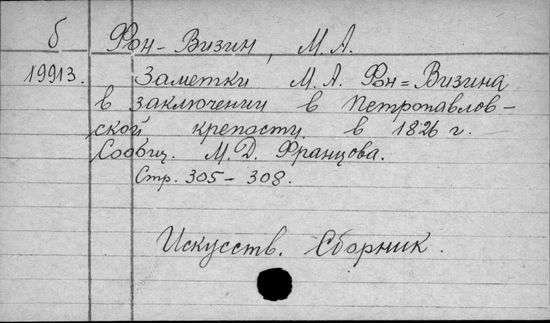 б
Фон-Визин, М.А.
19913.
Заметки М.А. Фон=Визина
в заключении в Петропавлов-
ской крепости в 1826 г.
Сообщ. М.Д. Францова.
Стр. 305-308.
Искусств. Сборник.